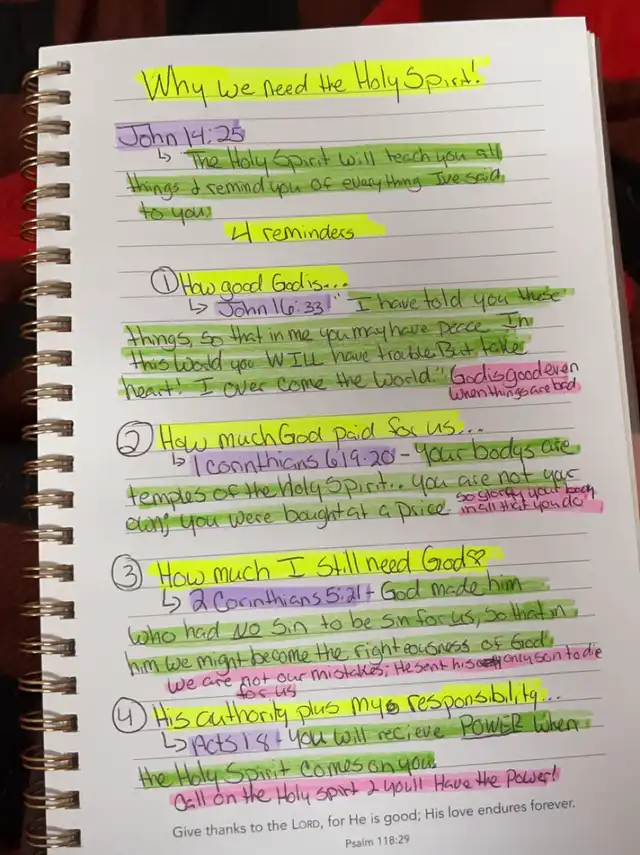 Why we need the Holy Spirit!
John 14:25
↳ The Holy Spirit will teach you all
things & remind you of everything I've said
to you.
4 reminders
① How good God is...
↳ John 16:33 " I have told you these
things, so that in me you may have peace. In
this world you WILL have trouble. But take
heart! I over come the world." God is good even
when things are bad
② How much God paid for us...
↳ 1 Corinthians 6:19-20 - Your bodys are
temples of the Holy Spirit.. you are not your
own; you were bought at a price. so glorify your body
in all that you do
③ How much I still need God
↳ 2 Corinthians 5:21 - God made him
who had NO sin to be sin for us, so that in
him we might become the righteousness of God.
We are not our mistakes; He sent his only son to die
for us
④ His authority plus my responsibility...
↳ Acts 1:8 - You will recieve POWER when
the Holy Spirit comes on you.
Call on the Holy spirt & you'll Have the Power!
Give thanks to the LORD, for He is good; His love endures forever.
Psalm 118:29